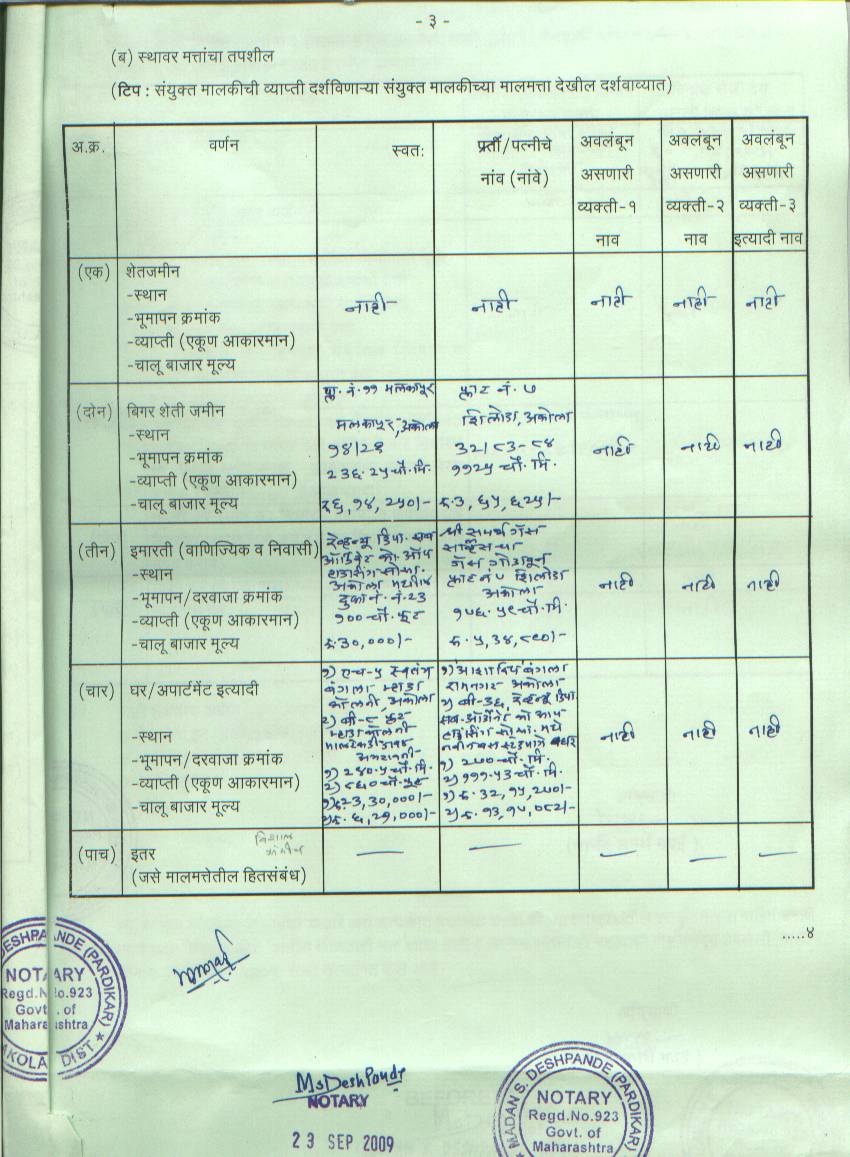 - ३ -
(ब) स्थावर मत्तांचा तपशील
(टिप : संयुक्त मालकीची व्याप्ती दर्शविणाऱ्या संयुक्त मालकीच्या मालमत्ता देखील दर्शवाव्यात)
अ.क्र. वर्णन स्वतः पती/पत्नीचे नांव (नांवे) अवलंबून असणारी व्यक्ती-१ नाव अवलंबून असणारी व्यक्ती-२ नाव अवलंबून असणारी व्यक्ती-३ इत्यादी नाव
(एक) शेतजमीन
-स्थान
नाही नाही नाही नाही नाही
-भूमापन क्रमांक
-व्याप्ती (एकूण आकारमान)
-चालू बाजार मूल्य
प्लॉ. नं. ११ मलकापूर प्लाट नं. ७
(दोन) बिगर शेती जमीन मलकापूर, अकोला शिलोडा, अकोला
-स्थान १४/२१ ३२/८३-८४ नाही नाही नाही
-भूमापन क्रमांक
-व्याप्ती (एकूण आकारमान) २३६.२५ चौ.मि. ११२५ चौ.मि.
-चालू बाजार मूल्य ६,१४,२५०/- रु. ३,६५,६२५/-
(तीन) इमारती (वाणिज्यिक व निवासी) रेव्हन्यू डिपा. सब श्री समर्थ गॅस
-स्थान अकोला गॅस गोडावून नाही नाही नाही
-भूमापन/दरवाजा क्रमांक दुकान नं. २३ अकोला
-व्याप्ती (एकूण आकारमान) १०० चौ. फुट १५६.५९ चौ.मि.
-चालू बाजार मूल्य रु. ३०,०००/- रु. ५,३४,८९०/-
१) एच-५ स्वतंत्र १) आशादिप बंगला
(चार) घर/अपार्टमेंट इत्यादी बंगला म्हाडा रामनगर अकोला
कॉलनी, अकोला २) बी-३६, रेव्हेन्यू डिपा.
-स्थान म्हाडा कॉलनी नाही नाही नाही
-भूमापन/दरवाजा क्रमांक अमरावती
-व्याप्ती (एकूण आकारमान) १) २४०.५ चौ.मि. १) २७० चौ.मि.
२) ८६० चौ.फुट २) १११.५३ चौ.मि.
-चालू बाजार मूल्य १) रु. २३,३०,०००/- १) रु. ३२,१५,२७०/-
२) रु. ६,२१,०००/- २) रु. १३,१५,०८२/-
(पाच) इतर
(जसे मालमत्तेतील हितसंबंध)
.....४
DESHPANDE (PARDIKAR)
NOTARY
Regd.No.923
Govt. of
Maharashtra
AKOLA DIST
MsDeshpande
NOTARY
23 SEP 2009
MADAN S. DESHPANDE (PARDIKAR)
NOTARY
Regd.No.923
Govt. of
Maharashtra